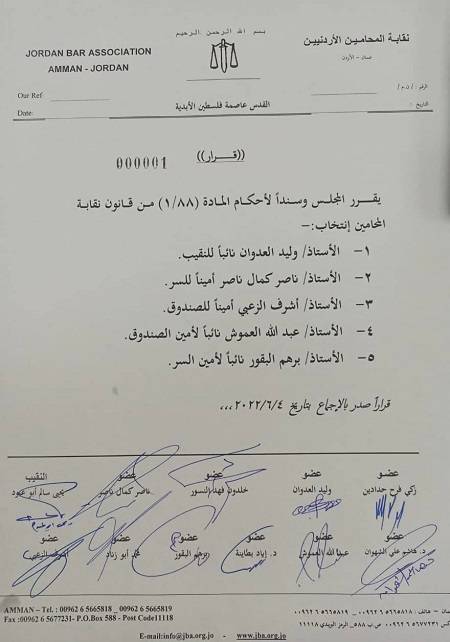 بسم الله الرحمن الرحيم
JORDAN BAR ASSOCIATION
نقابة المحامين الأردنيين
AMMAN - JORDAN
عمان - الأردن
Our Ref
الرقم:
Date:
التاريخ :
القدس عاصمة فلسطين الأبدية
((قـرار))
000001
يقـرر المجلس وسنداً لأحكام المادة (١/٨٨) من قانون نقابة
المحامين إنتخاب:-
١- الأستاذ/ وليد العدوان نائباً للنقيب.
٢- الأستاذ/ ناصر كمال ناصر أميناً للسر.
٣- الأستاذ/ أشرف الزعبي أميناً للصندوق.
٤- الأستاذ/ عبد الله العموش نائباً لأمين الصندوق.
٥- الأستاذ/ برهم البقور نائباً لأمين السر.
قراراً صدر بالإجماع بتاريخ ٢٠٢٢/٦/٤,,,
عضو عضو عضو عضو النقيب
زكي فرح حدادين وليد العدوان خلدون فهد النسور ناصر كمال ناصر يحيى سالم أبو عبود
د. هاشم علي الشهوان عبد الله العموش د. إياد بطاينة برهم البقور أبو زناد أشرف الزعبي
AMMAN – Tel. : 00962 6 5665818 _ 00962 6 5665819
Fax :00962 6 5677231- P.O.Box 588 - Post Code11118
عمان - هاتف : ٠٠٩٦٢ ٦ ٥٦٦٥٨١٨ _ ٠٠٩٦٢ ٦ ٥٦٦٥٨١٩
٠٠٩٦٢ ٦ ٥٦٧٧٢٣١ - ص ب ٥٨٨ـ الرمز البريدي ١١١١٨
E-mail:info@jba.org.jo - www.jba.org.jo